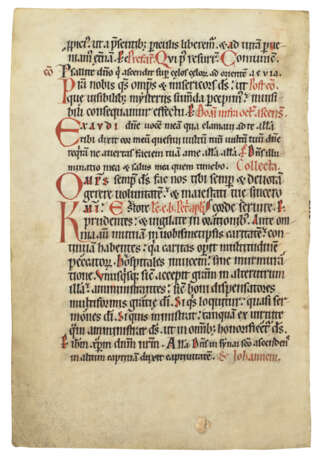 ppici' vt a psentib; piculis liberem̄. & ad vitā pue
niam' etnā. P Prefac. Qui p resurr. Comunē.
co Psallite dn̄o q ascendit sup celos celoꝝ ad orientē aevia.
Prs nobis qs omps & misericors ds: vt Postco.
que visibilib' mysteriis sumenda pcepim': inuisi
bili consequamur effectu. P Doā infra oct̄ ascens.
Exaudi dn̄e vocē meā qua clamaui ad te alla
tibi dixit cor meū quesiui vultū tuū vultū tuū dn̄e
reqrā ne auertas faciem tuā a me alla alla. P Dn̄s illu
minatio mea & salus mea quem timebo. Collecta.
Omps semp ds fac nos tibi semp & deuotā
gerere volūtatē: & maiestati tue sincero
Kmi: Estote. Le. b. Pe. apli. corde seruire. P
prudentes: & vigilate in orationib'. Ante om
nia aūt mutuā in vobismetipsis caritatē: con
tinuā habentes: qa caritas opit multitudinē
peccatoꝝ. hospitales inuicem: sine murmuratiōe
Vnusqsq; sicut accepit grām in alterutrum
illam amministrantes: sicut boni dispensatores
multiformis gratie di. Si qs loquitur: quasi ser
mones di. Si quis ministrat: tanquā ex uirtute
quā amministrat ds: ut in omib; honorificet' ds.
P ihm xpm dnm nrm. Alla. P Dn̄s in synai sco ascendens
in altum captiuā duxit captiuitatē. S. Iohannem.